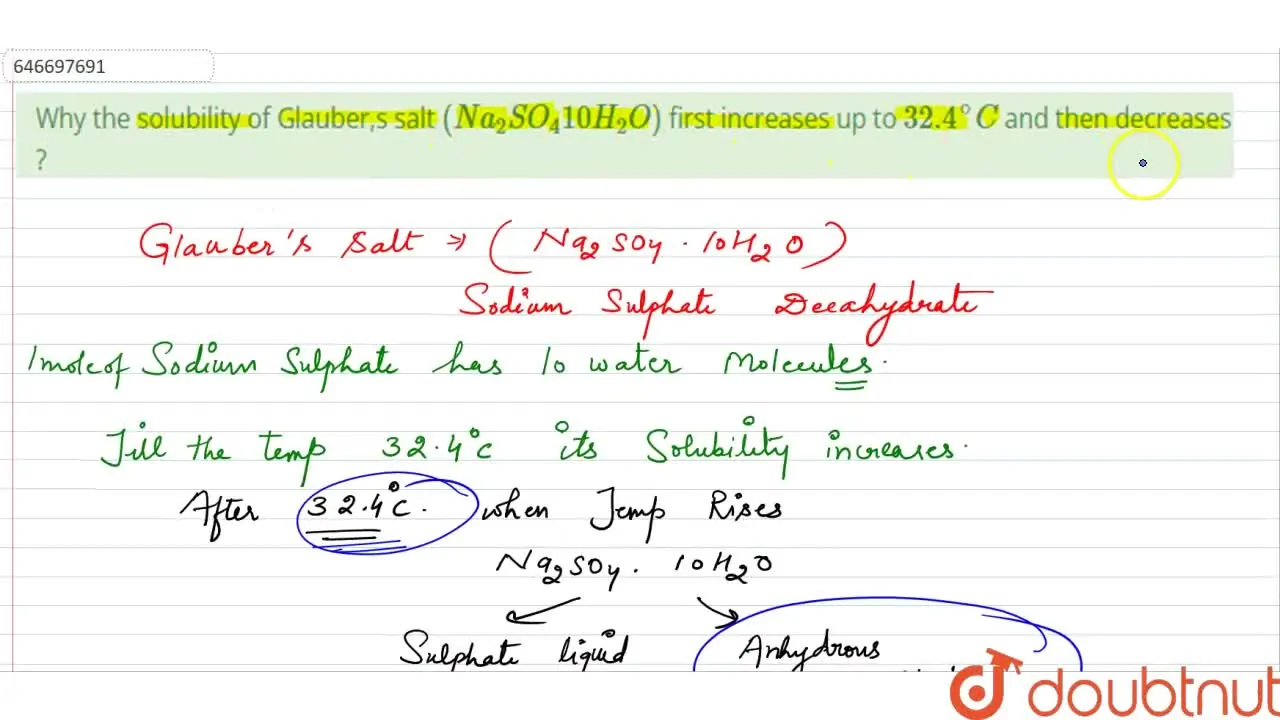 646697691
Why the solubility of Glauber,s salt (Na₂SO₄10H₂O) first increases up to 32.4° C and then decreases
?
Glauber's Salt ⇒ (Na₂SO₄ · 10H₂O)
Sodium Sulphate Decahydrate
1 mole of Sodium Sulphate has 10 water Molecules.
Till the temp 32.4°C its Solubility increases.
After 32.4°C. when Temp Rises
Na₂SO₄. 10H₂O
Sulphate liquid Anhydrous
doubtnut